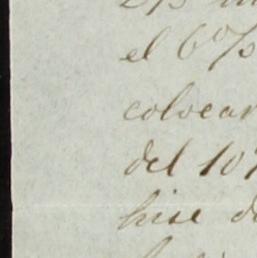 el 6%
colocar
del 10%
hise d